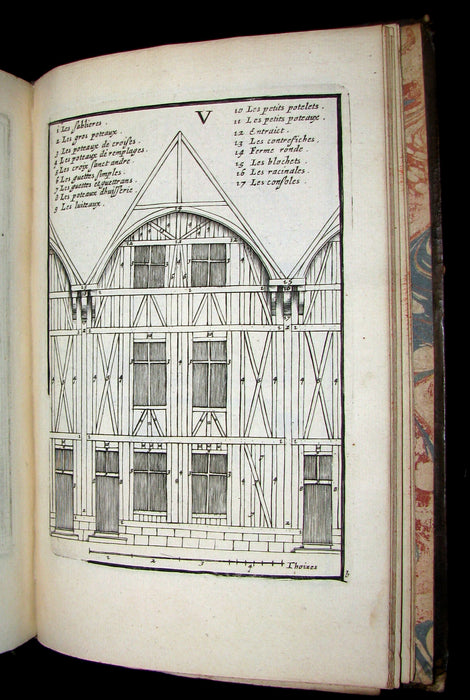 V
1 Les sablieres .
2 Les gros poteaux .
3 Les poteaux de croisee .
4 Les poteaux de remplages .
5 Les croix sainct andre
6 Les guettes simples .
7 Les guettes et guettrons .
8 Les poteaux dhuisserie .
9 Les luiteaux .
10 Les petits potelets .
11 Les petits poteaux .
12 Entraict .
13 Les contrefiches .
14 Ferme ronde .
15 Les blochets .
16 Les racinales .
17 Les consoles .
1 2 3 4 Thoises
b